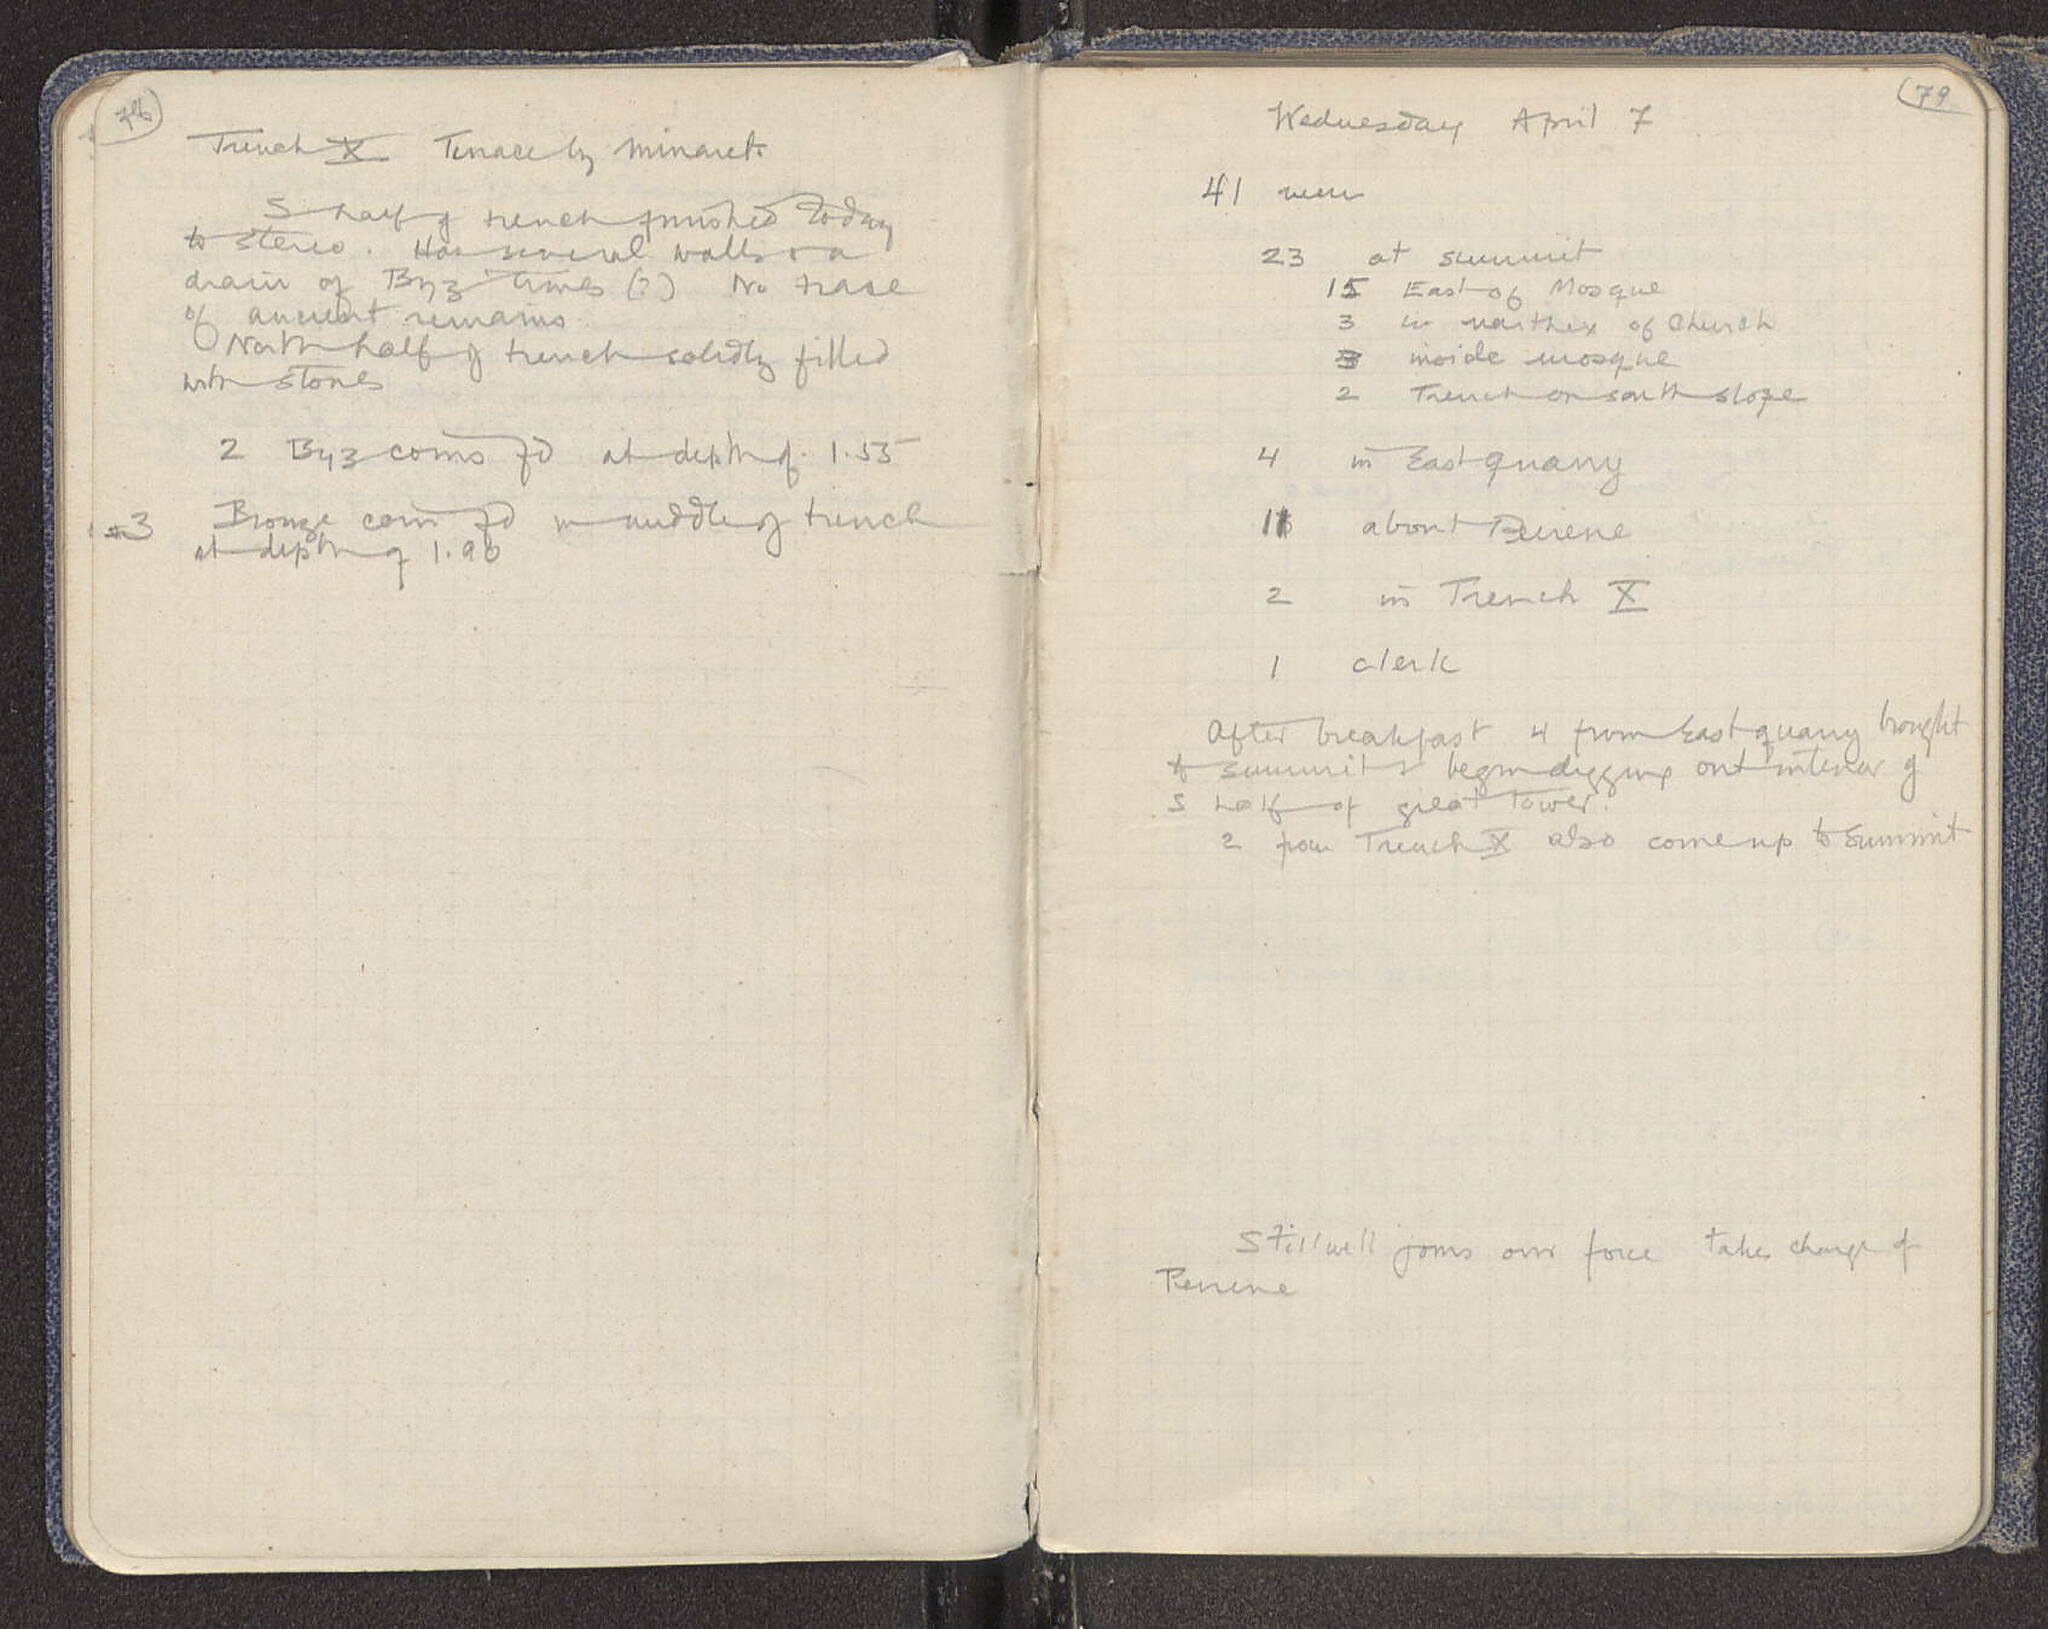 78
Trench X Terrace by Minaret.
S half of trench finished today
to stereo. Has several walls & a
drain of Byz times (?) No trace
of ancient remains.
North half of trench solidly filled
with stones
2 Byz coins fd at depth of 1.55
3 Bronze coin fd in middle of trench
at depth of 1.90
79
Wednesday April 7
41 men
23 at summit
15 East of Mosque
3 in narthex of Church
3 inside mosque
2 Trench on south slope
4 in East quarry
11 about Peirene
2 in Trench X
1 clerk
After breakfast 4 from East quarry brought
to summit & begin digging out interior of
S half of great tower.
2 from Trench X also come up to summit
Stillwell joins our force takes charge of
Peirene